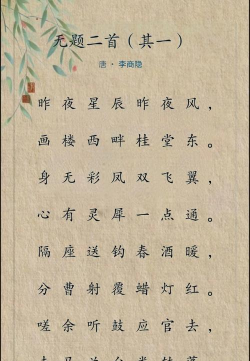 无题二首（其一）
唐·李商隐
昨夜星辰昨夜风，
画楼西畔桂堂东。
身无彩凤双飞翼，
心有灵犀一点通。
隔座送钩春酒暖，
分曹射覆蜡灯红。
嗟余听鼓应官去，